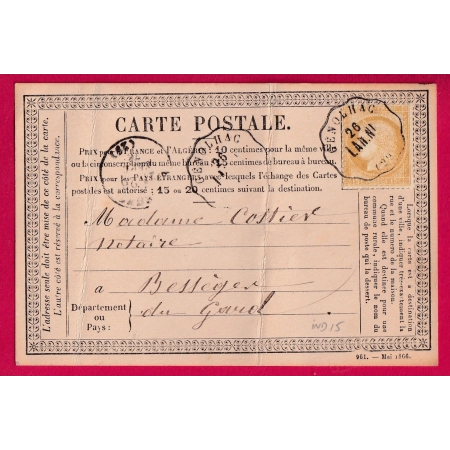 CARTE POSTALE.
GENOLHAC
26
JANV
Prix pour la France et l'Algérie : 10 centimes pour la même ville
ou la circonscription du même bureau, 15 centimes de bureau à bureau.
Prix pour les pays étrangers avec lesquels l'échange des Cartes
postales est autorisé : 15 ou 20 centimes suivant la destination.
L'adresse seule doit être mise de ce côté de la carte.
L'autre côté est réservé à la correspondance.
Madame Costier
notaire
à Bességes
Département
ou
Pays :
du Gard
IND 15
Lorsque la carte est à destination
d'une ville, indiquer très-exactement la
rue et le numéro de la maison.
Quand elle est destinée pour une
commune rurale, indiquer le nom du
bureau de poste qui la dessert.
961. — Mai 1866.